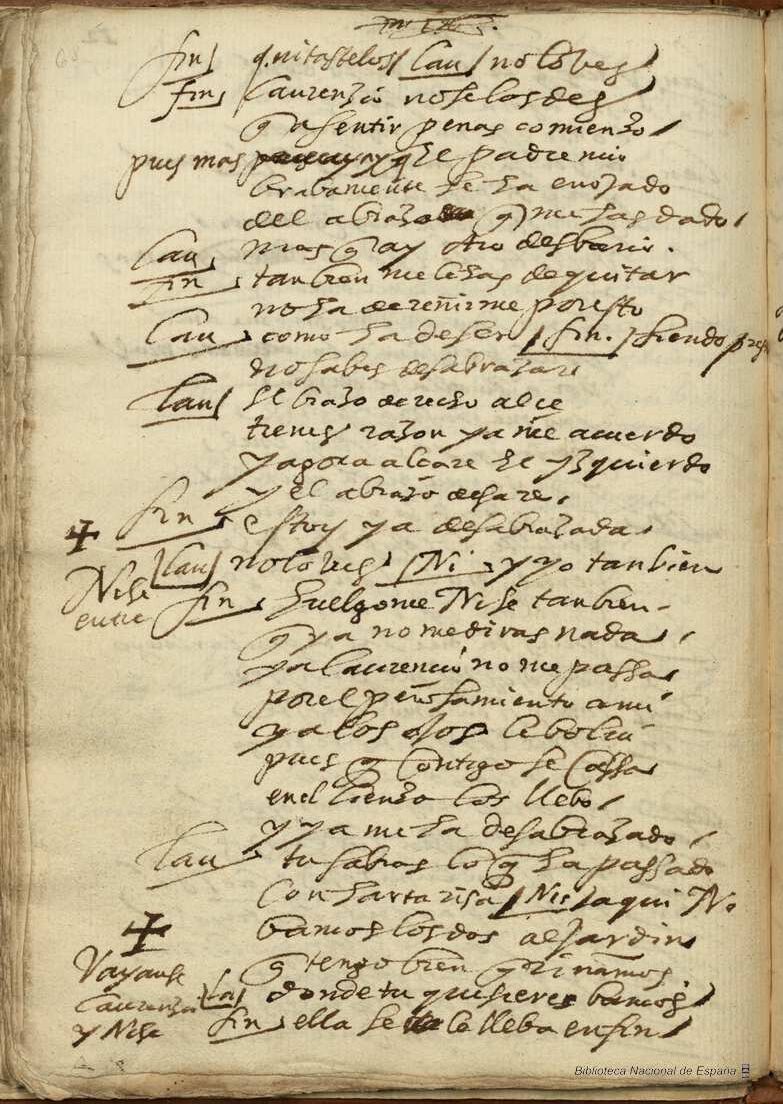 fin quitastelos lau no lo ves
fin laurenzio no se los des
q a sentir penas comienzo
pues mas q he padre mio
brabamente se ha enojado
del abrazo q me has dado
lau mas q ay otro desbario
fin tanbien me le has de quitar
no ha de reñirme por esto
lau como ha de ser fin. siendo presto
no sabes desabrazar
lau el brazo derecho alce
tienes razon ya me acuerdo
y agora alçare el yzquierdo
y el abrazo desare
fin estoy ya desabrazada
lau no lo ves Ni y yo tanbien
Nise
entre
fin huelgome Nise tanbien
q ya no me diras nada
ya laurencio no me passa
por el pensamiento a mi
ya los ojos le bolui
pues q contigo se cassa
en el lienzo los llebo
y ya me ha desabrazado
lau tu sabras lo q ha passado
con harta risa Nis aqui No
bamos los dos al jardin
q tengo bien q riñamos
Vayanse
laurenzio
y Nise
la donde tu quisieres bamos
fin ella se le lleba en fin
Biblioteca Nacional de España